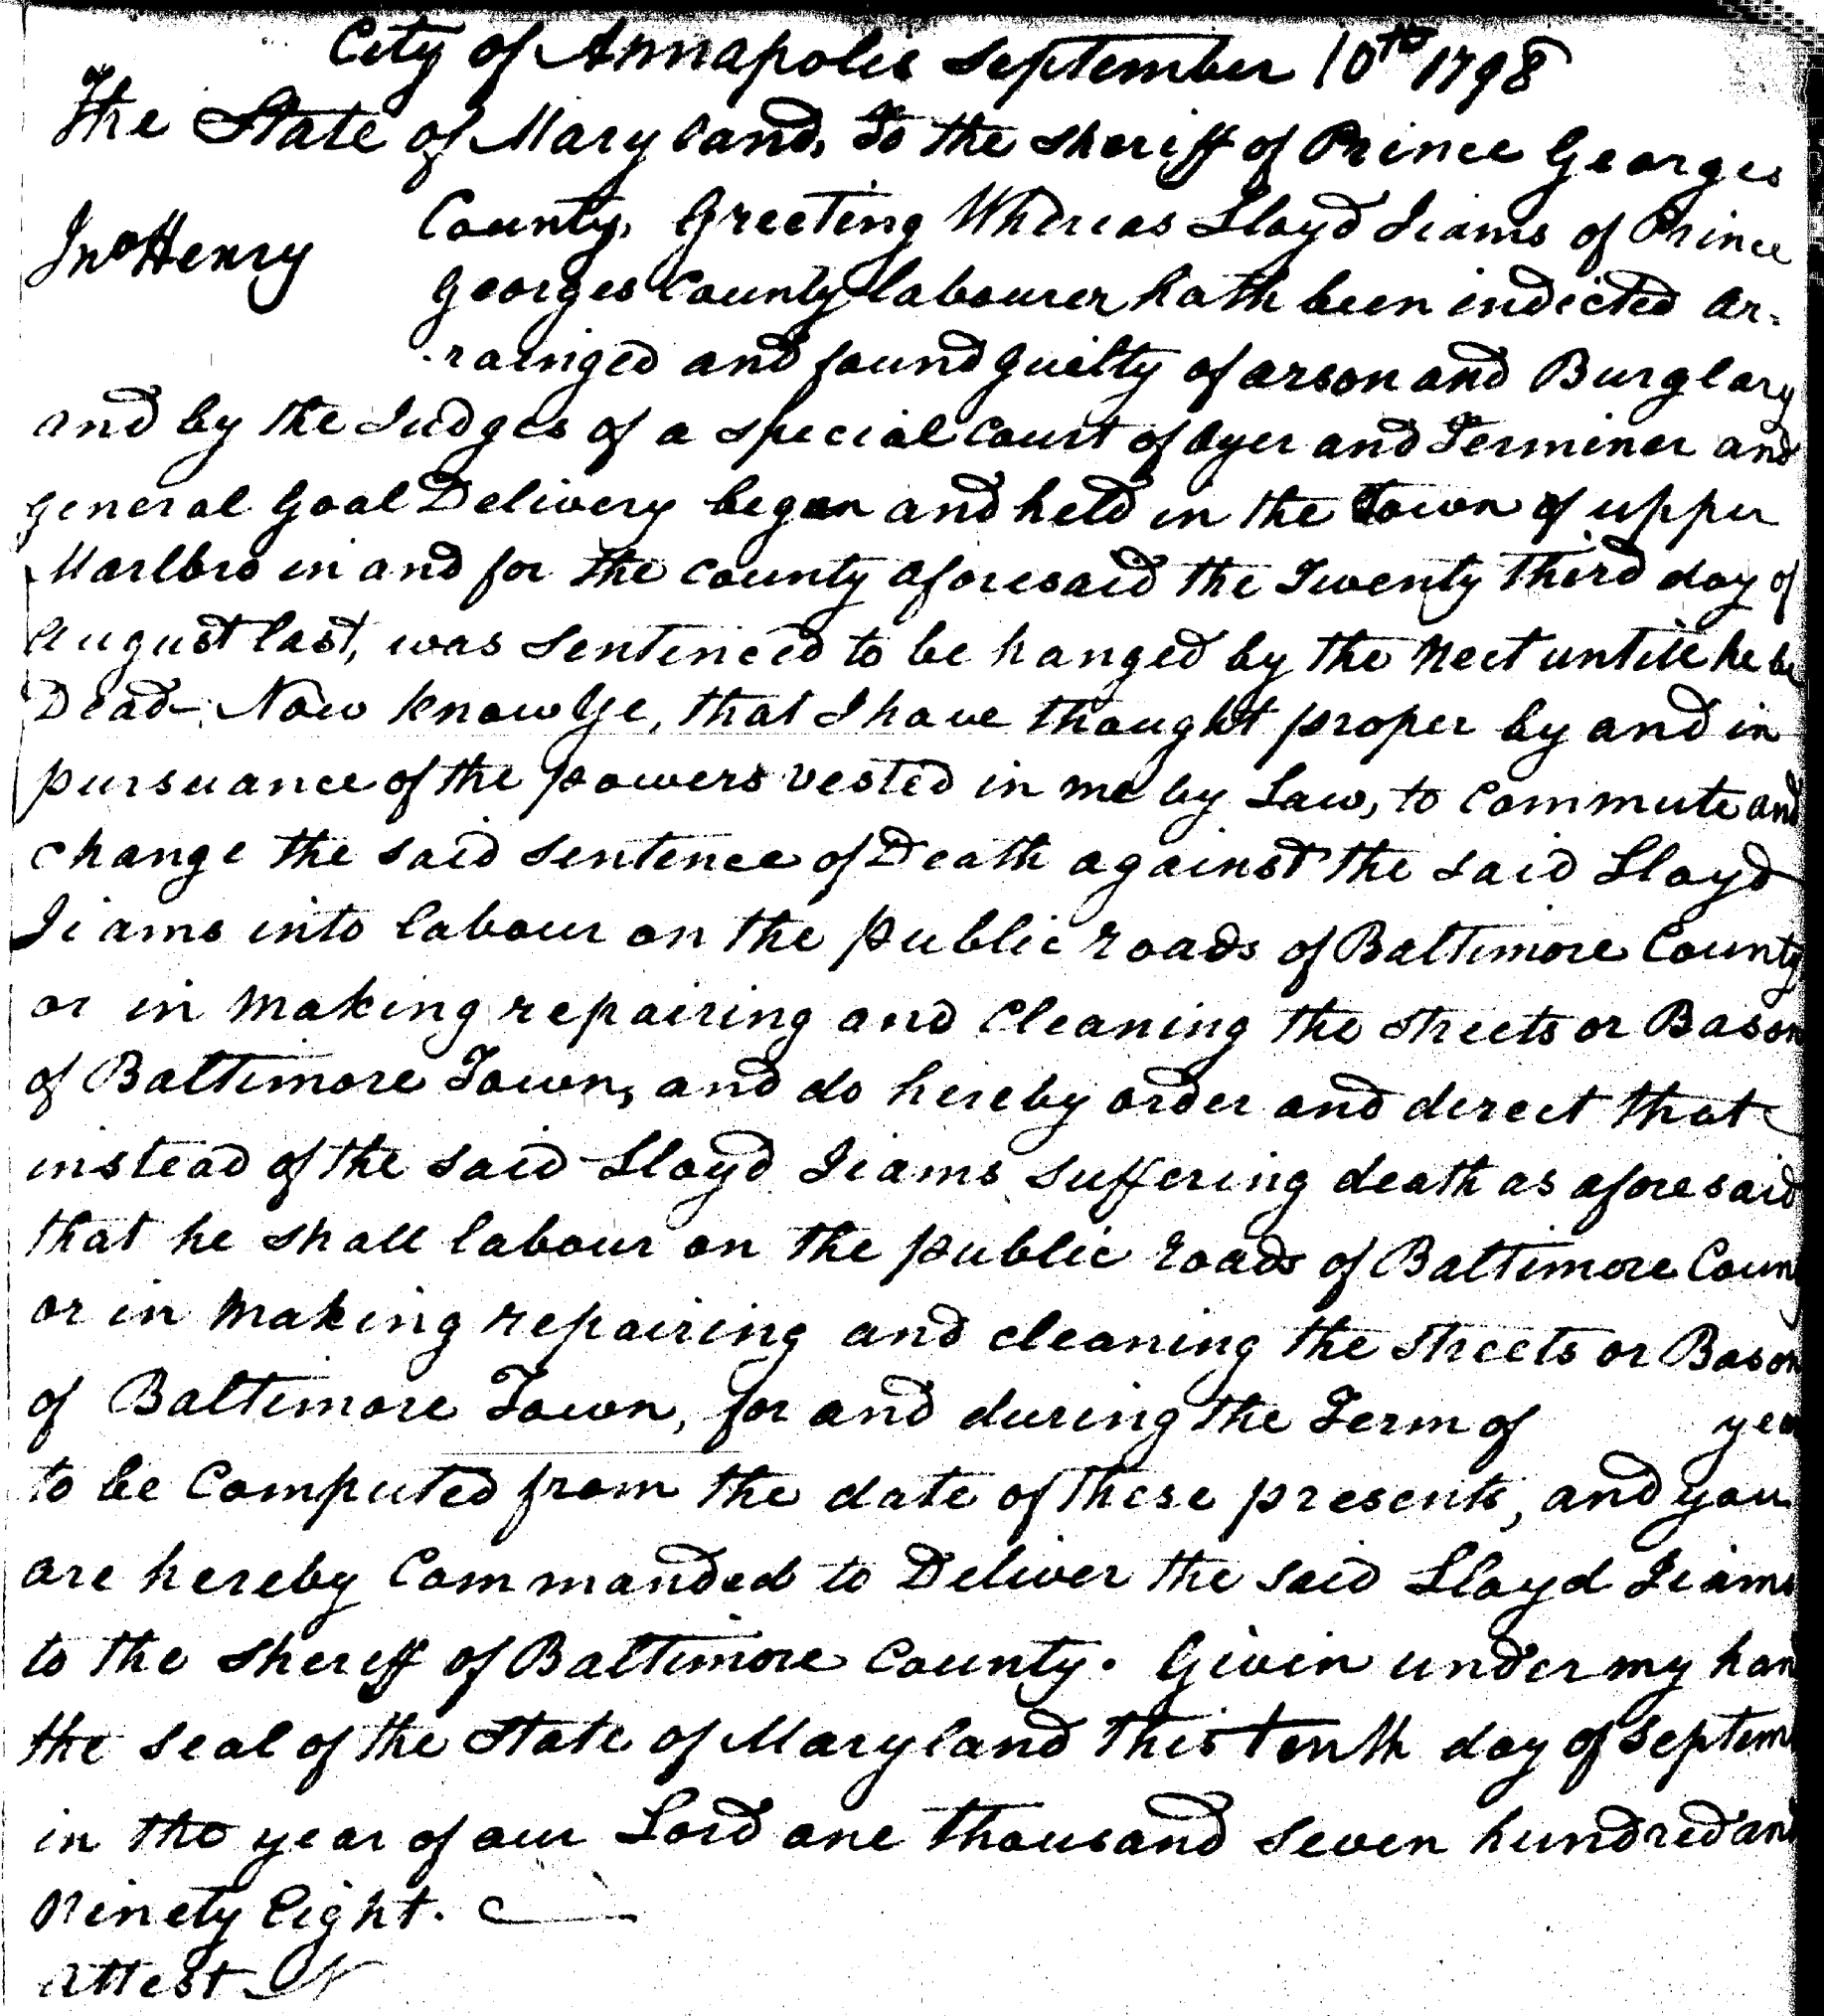 City of Annapolis September 10th 1798
The State of Maryland, To the Sheriff of Prince Georges
Jno Henry
County, Greeting Whereas Lloyd Iiams of Prince
Georges County labourer hath been indicted ar-
rainged and found guilty of arson and Burglary
and by the Judges of a special Court of Oyer and Terminer and
general Goal Delivery began and held in the Town of upper
Marlbro in and for the County aforesaid the Twenty Third day of
August last, was Sentenced to be hanged by the Neck untill he be
Dead. Now know Ye, that I have thought proper by and in
pursuance of the powers vested in me by Law, to Commute and
change the said Sentence of Death against the said Lloyd
Iiams into labour on the public roads of Baltimore County
or in making repairing and Cleaning the Streets or Bason
of Baltimore Town, and do hereby order and direct that
instead of the said Lloyd Iiams suffering death as aforesaid
that he shall labour on the public roads of Baltimore Coun
or in making repairing and cleaning the Streets or Bason
of Baltimore Town, for and during the Term of yea
to be Computed from the date of these presents, and you
are hereby Commanded to Deliver the said Lloyd Iiams
to the Sheriff of Baltimore County. Given under my han
the seal of the State of Maryland this tenth day of Septem
in the year of our Lord one thousand seven hundred and
Ninety Eight.
Attest N